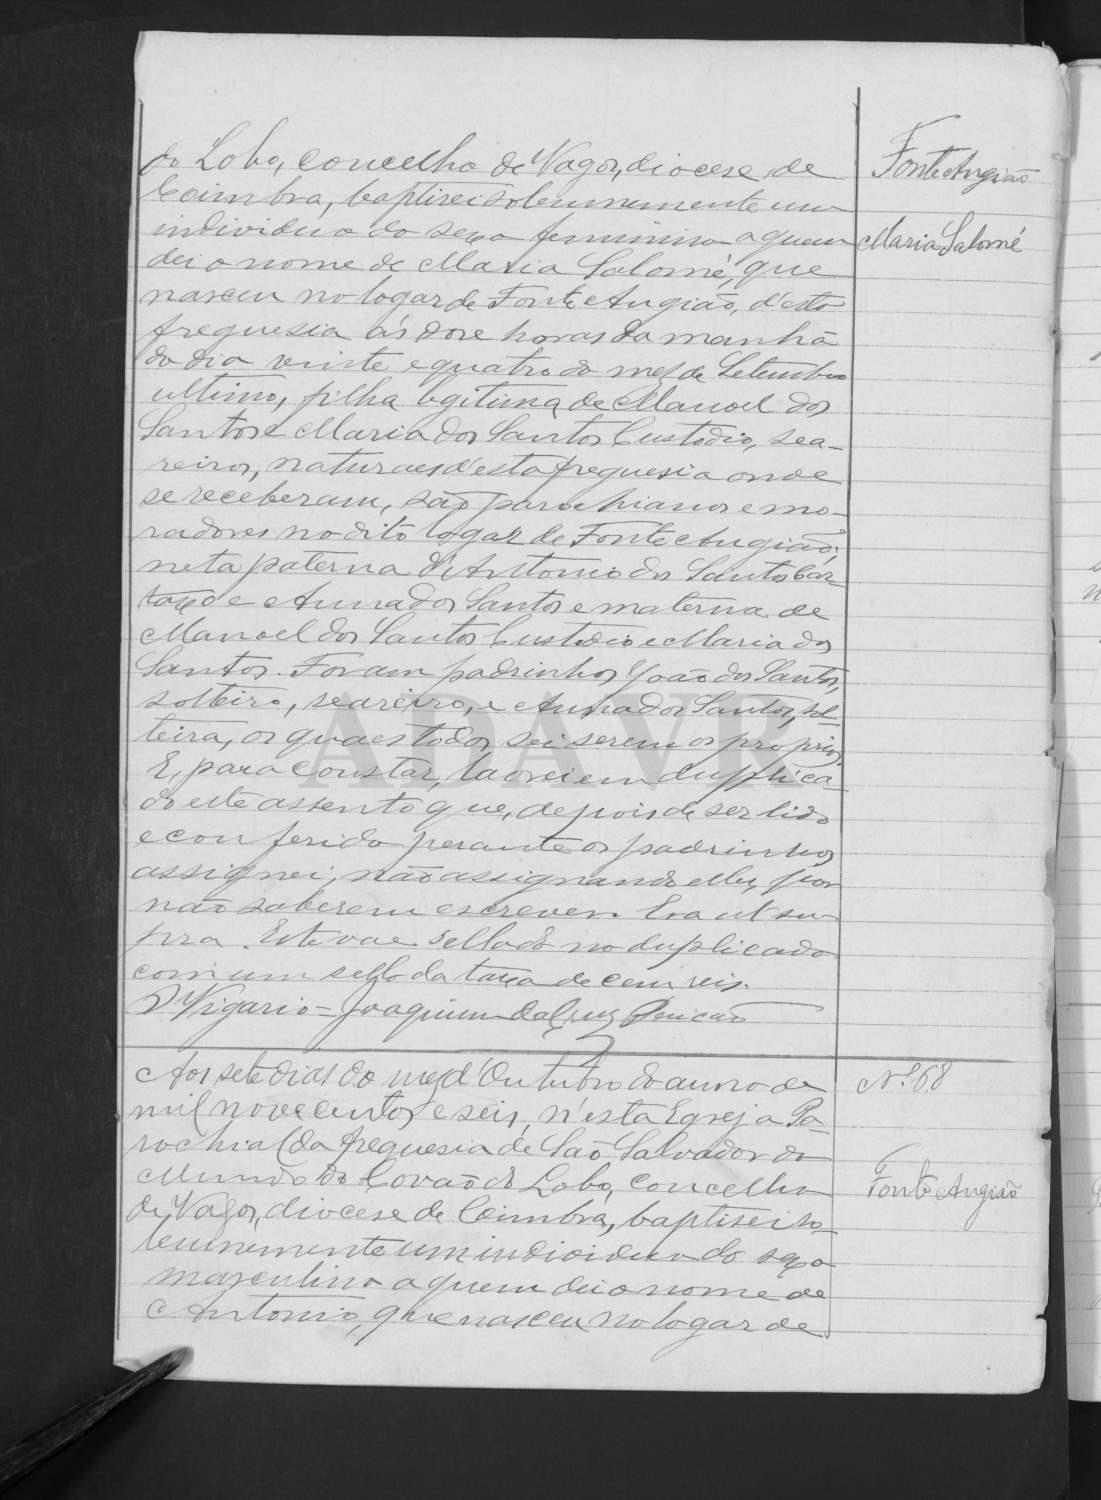 do Lobo, concelho de Vagos, diocese de
Coimbra, baptisei solemnemente um
individuo do sexo feminino a quem
dei o nome de Maria Salomé, que
nasceu no logar de Fonte Angião, d'esta
freguesia ás doze horas da manhã
do dia vinte e quatro do mez de Setembro
ultimo, filha legitima de Manoel dos
Santos e Maria dos Santos Custodio, sea-
reiros, naturaes d'esta freguesia onde
se receberam, são parochianos e mo-
radores no dito logar de Fonte Angião;
neta paterna d'Antonio dos Santos Car-
taxo e Anna dos Santos e materna de
Manoel dos Santos Custodio e Maria dos
Santos. Foram padrinhos João dos Santos,
solteiro, seareiro, e Anna dos Santos, sol-
teira, os quaes todos sei serem os proprios.
E, para constar, lavrei em duplica-
do este assento que, depois de ser lido
e conferido perante os padrinhos
assignei, não assignando elles, por
não saberem escrever. Era ut su-
pra. Este vae sellado no duplicado
com um sello da taxa de cem reis.
O Vigario = Joaquim da Cruz
Fonte Angião
Maria Salomé
Aos sete dias do mez d'Outubro do anno de
mil novecentos e seis, n'esta Egreja Pa-
rochial da freguesia de São Salvador do
Mundo do Covão do Lobo, concelho
de Vagos, diocese de Coimbra, baptisei so-
lemnemente um individuo do sexo
masculino a quem dei o nome de
Antonio, que nasceu no logar de
Nº 68
Fonte Angião
ADAVR